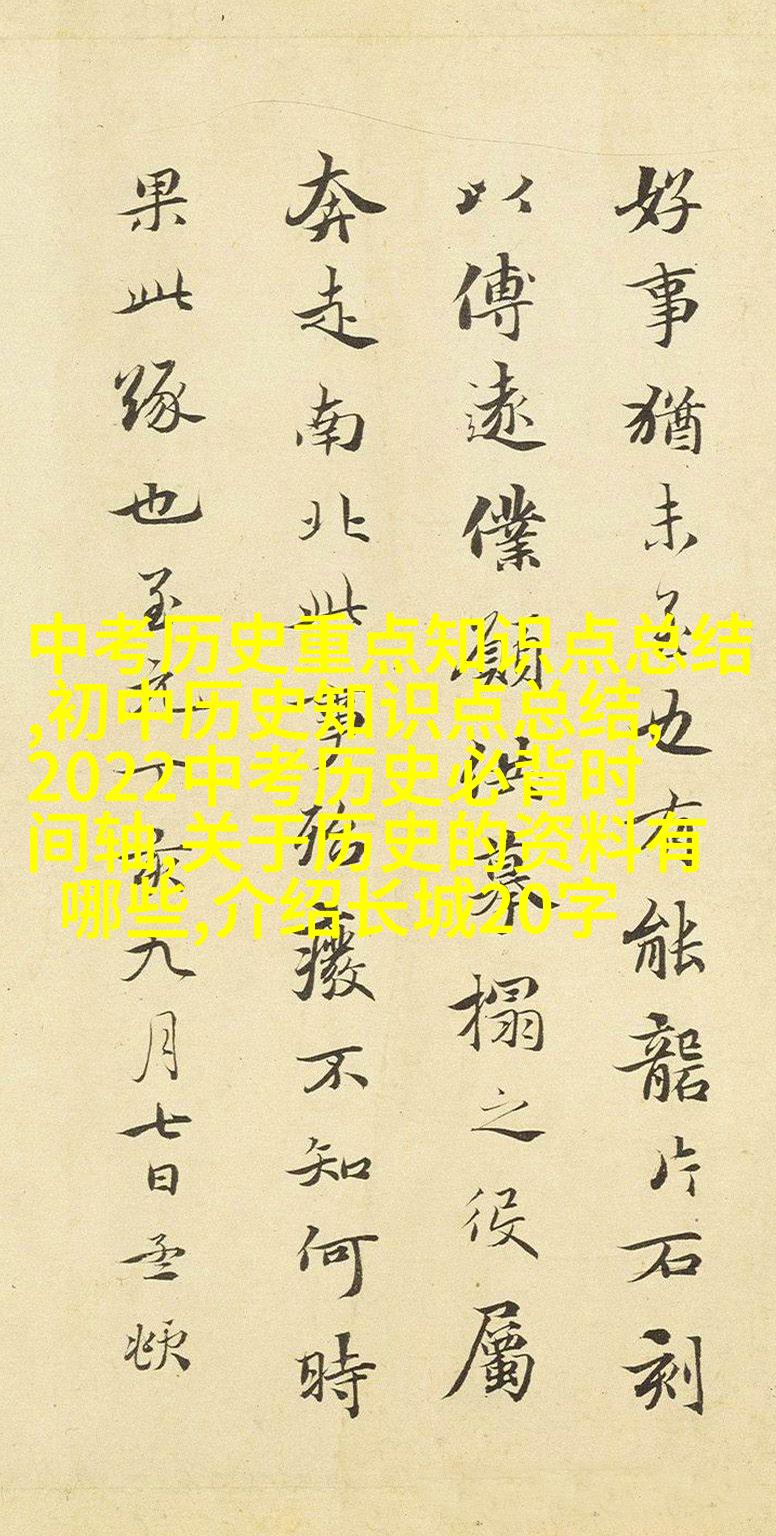 好事猶未也有能礱片石刻
以傅遠僕願摹搨之役屬
奔走南北此事殆癈不知何時
果此緣也至九月七日孟頫
中考历史重点知识点总结
,初中历史知识点总结,
2022中考历史必背时
间轴,关于历史的资料有
哪些,介绍长城20字